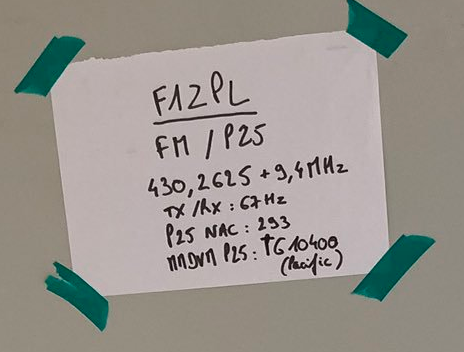 F1ZPL
FM / P25
430,2625 + 9,4MHz
TX/RX : 67Hz
P25 NAC : 293
MMDVM P25 : TG 10400
(Pacific)